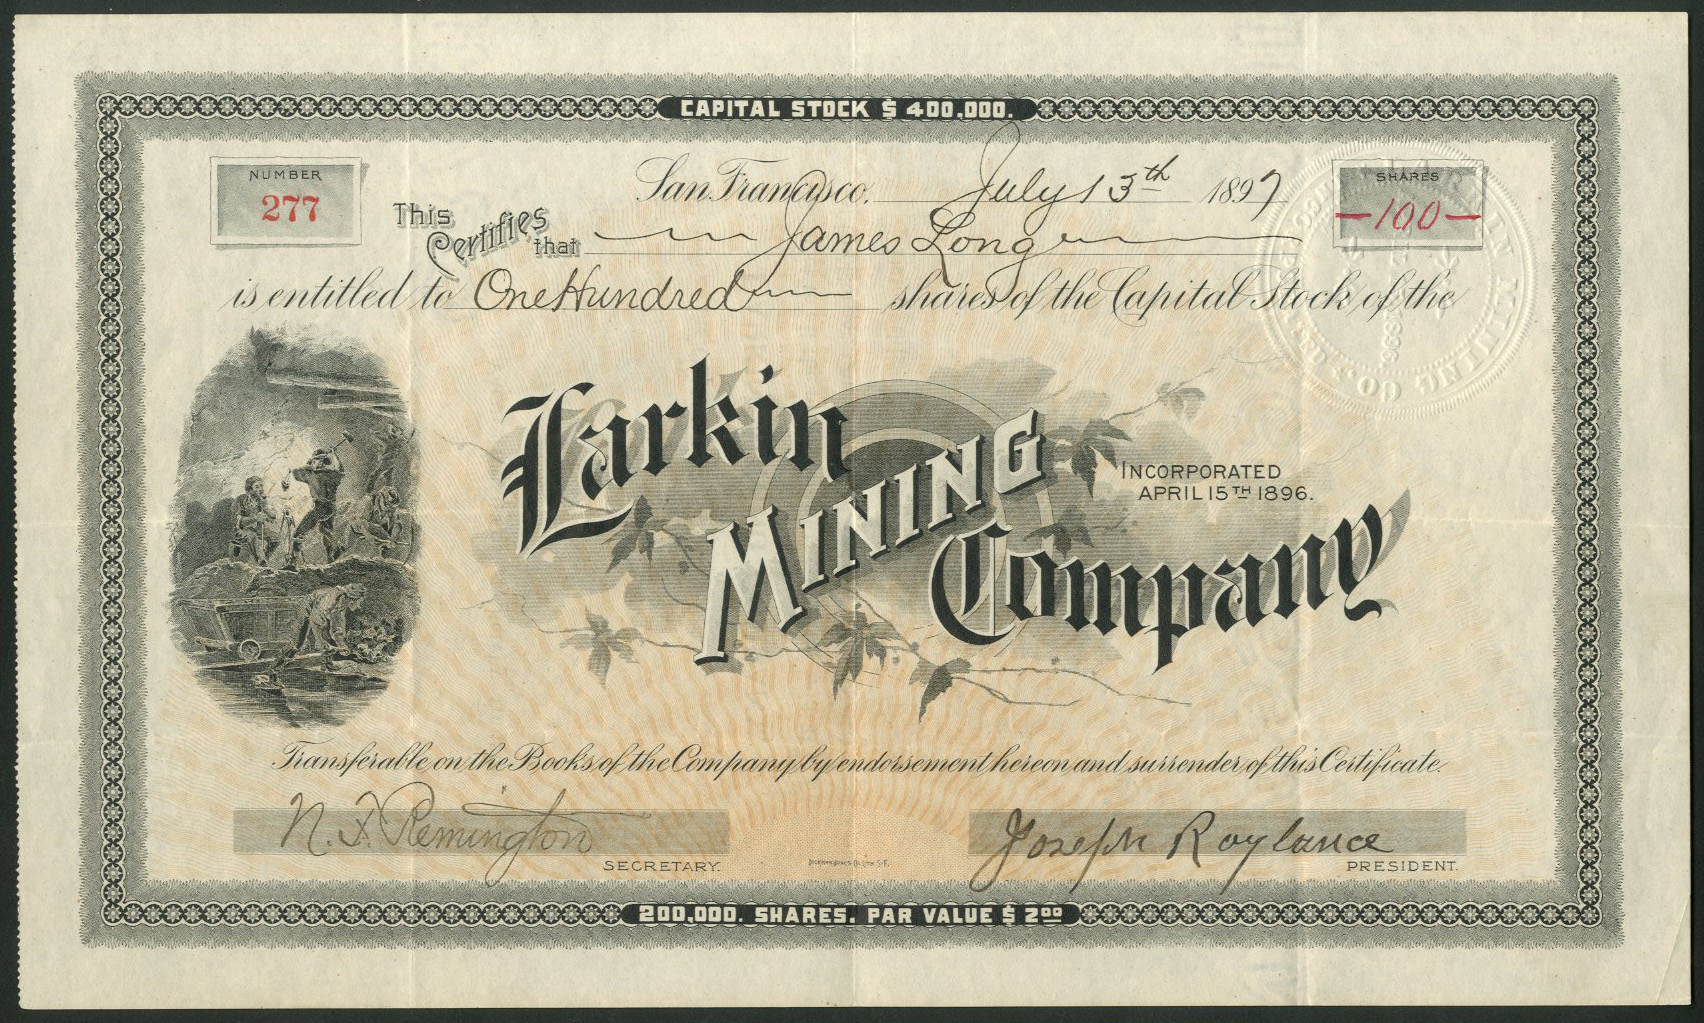 CAPITAL STOCK $ 400,000.
NUMBER
277
San Francisco, July 13th 1897
SHARES
—100—
This Certifies that James Long
is entitled to One Hundred shares of the Capital Stock of the
Larkin
Mining
Company
INCORPORATED
APRIL 15TH 1896.
Transferable on the Books of the Company by endorsement hereon and surrender of this Certificate.
N. F. Remington
SECRETARY.
Joseph Roylance
PRESIDENT.
200,000. SHARES. PAR VALUE $ 2.00